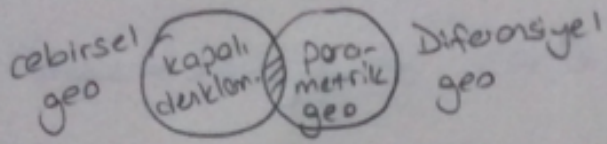 cebirsel
geo
kapalı
denklem
para-
metrik
geo
Diferansiyel
geo